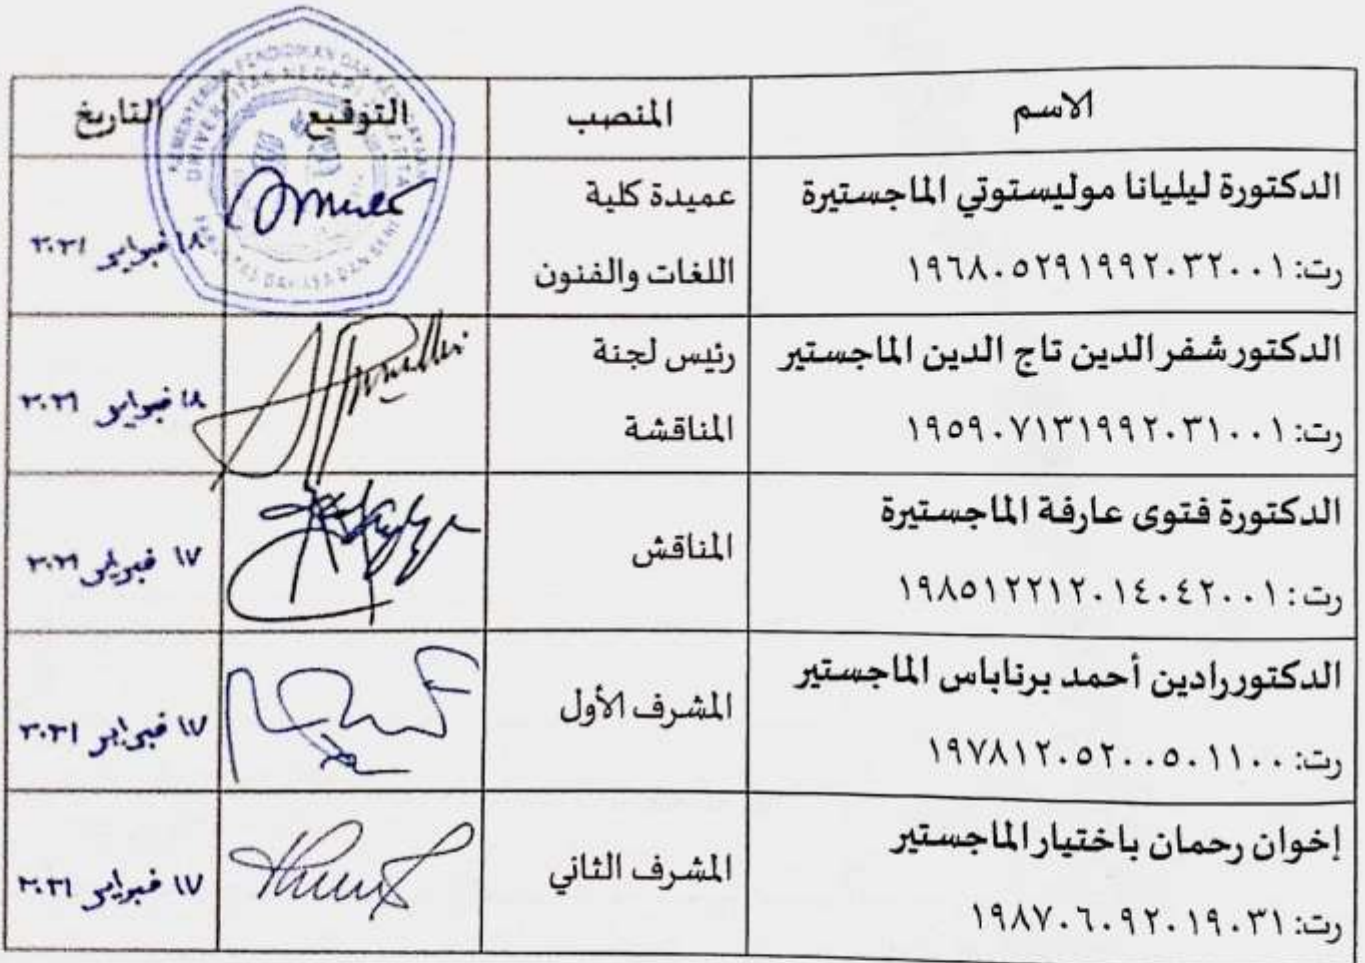 الاسم المنصب التوقيع التاريخ
الدكتورة ليليانا موليستوتي الماجستيرة
رت: ١٩٦٨٠٥٢٩١٩٩٢٠٣٢٠٠١
عميدة كلية
اللغات والفنون
١٨ فبراير ٢٠٢١
الدكتور شفر الدين تاج الدين الماجستير
رت: ١٩٥٩٠٧١٣١٩٩٢٠٣١٠٠١
رئيس لجنة
المناقشة
١٨ فبراير ٢٠٢١
الدكتورة فتوى عارفة الماجستيرة
رت: ١٩٨٥١٢٢١٢٠١٤٠٤٢٠٠١
المناقش
١٧ فبراير ٢٠٢١
الدكتور رادين أحمد برناباس الماجستير
رت: ١٩٧٨١٢٠٥٢٠٠٥٠١١٠٠
المشرف الأول
١٧ فبراير ٢٠٢١
إخوان رحمان باختيار الماجستير
رت: ١٩٨٧٠٦٠٩٢٠١٩٠٣١
المشرف الثاني
١٧ فبراير ٢٠٢١
UNIVERSITAS NEGERI